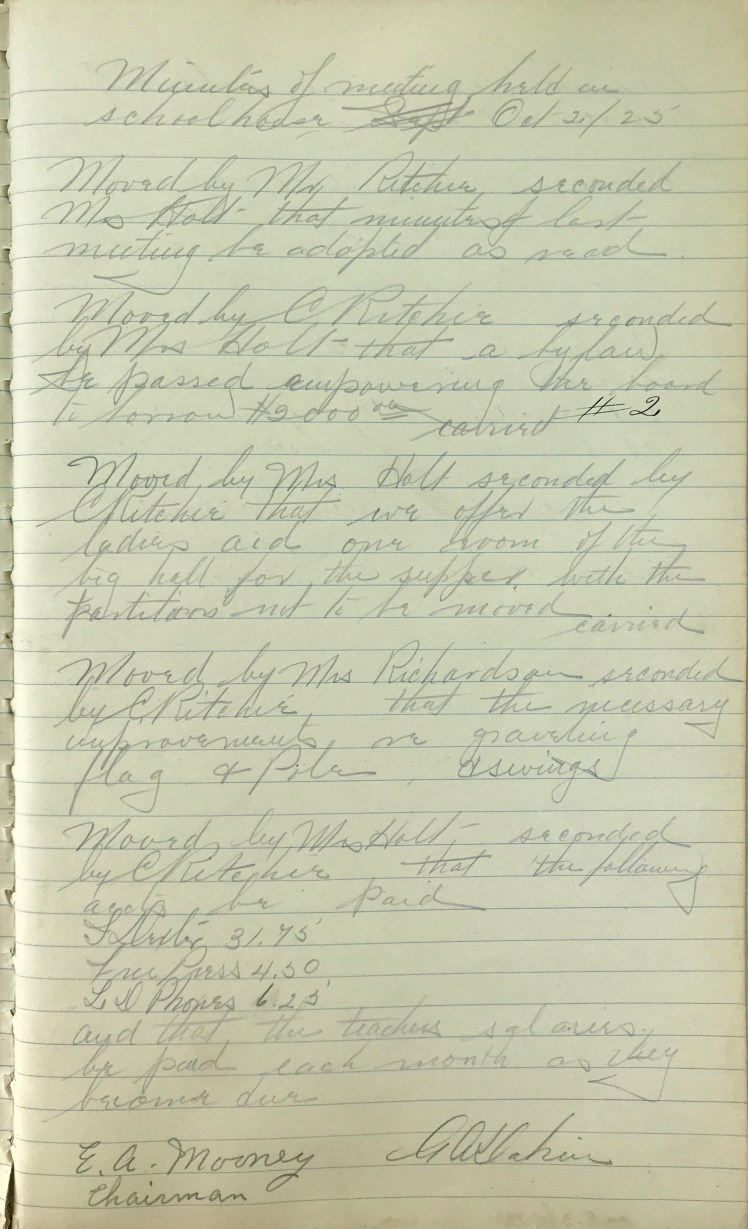 Minutes of meeting held in
schoolhouse Sept Oct 21/25
Moved by Mr Ritchie seconded
Mrs Holt that minutes of last
meeting be adopted as read.
Moved by C Ritchie seconded
by Mrs Holt that a bylaw
be passed empowering the board
to borrow $2000 00 carried #2
Moved by Mrs Holt seconded by
C Ritchie that we offer the
ladies aid one room of the
big hall for the supper with the
partitions not to be moved
carried
Moved by Mrs Richardson seconded
by C Ritchie that the necessary
improvements re graveling
flag & Pole & swings
Moved by Mrs Holt seconded
by C Ritchie that the following
accts be paid
31.75
Free Press 4.50
L D Phones 6.25
and that the teachers salaries
be paid each month as they
become due
E. A. Mooney
Chairman